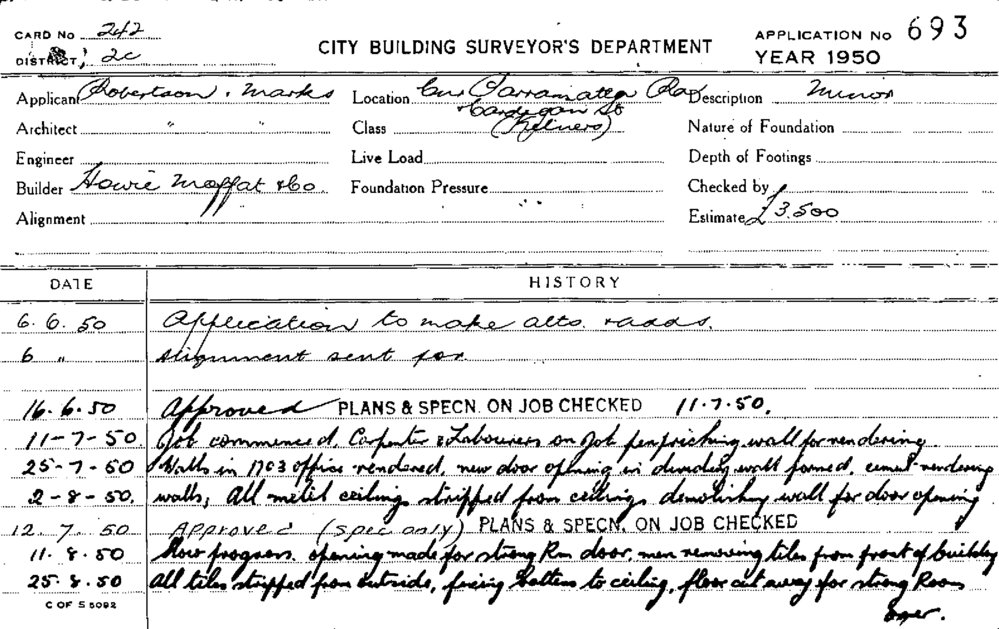 CARD No 242
DISTRICT, 2c
CITY BUILDING SURVEYOR'S DEPARTMENT
APPLICATION No 693
YEAR 1950
Applicant Robertson & Marks
Location Cnr Parramatta Rd
& Cardigan St
Description Minor
Architect " "
Class (Kelvners)
Nature of Foundation
Engineer
Live Load
Depth of Footings
Builder Howie Moffat & Co.
Foundation Pressure
Checked by
Alignment
Estimate £3.500
DATE HISTORY
6. 6. 50 Application to make alts. & adds.
6 " Alignment sent for
16. 6. 50 Approved PLANS & SPECN. ON JOB CHECKED 11.7.50.
11-7-50. Job commenced. Carpenter & Labourers on Job wall for rendering
25-7-50 Walls in office rendered, new door opening in dividing wall formed, cement-rendering
2-8-50. walls; All metal ceilings stripped from ceilings demolishing wall for door opening
12. 7. 50 Approved (spec only) PLANS & SPECN. ON JOB CHECKED
11. 8. 50 Slow progress. opening made for strong Rm door. men removing tiles from front of building
25. 8. 50 All tiles stripped from outside, fixing battens to ceiling, floor cut away for strong Room
C OF S 5092